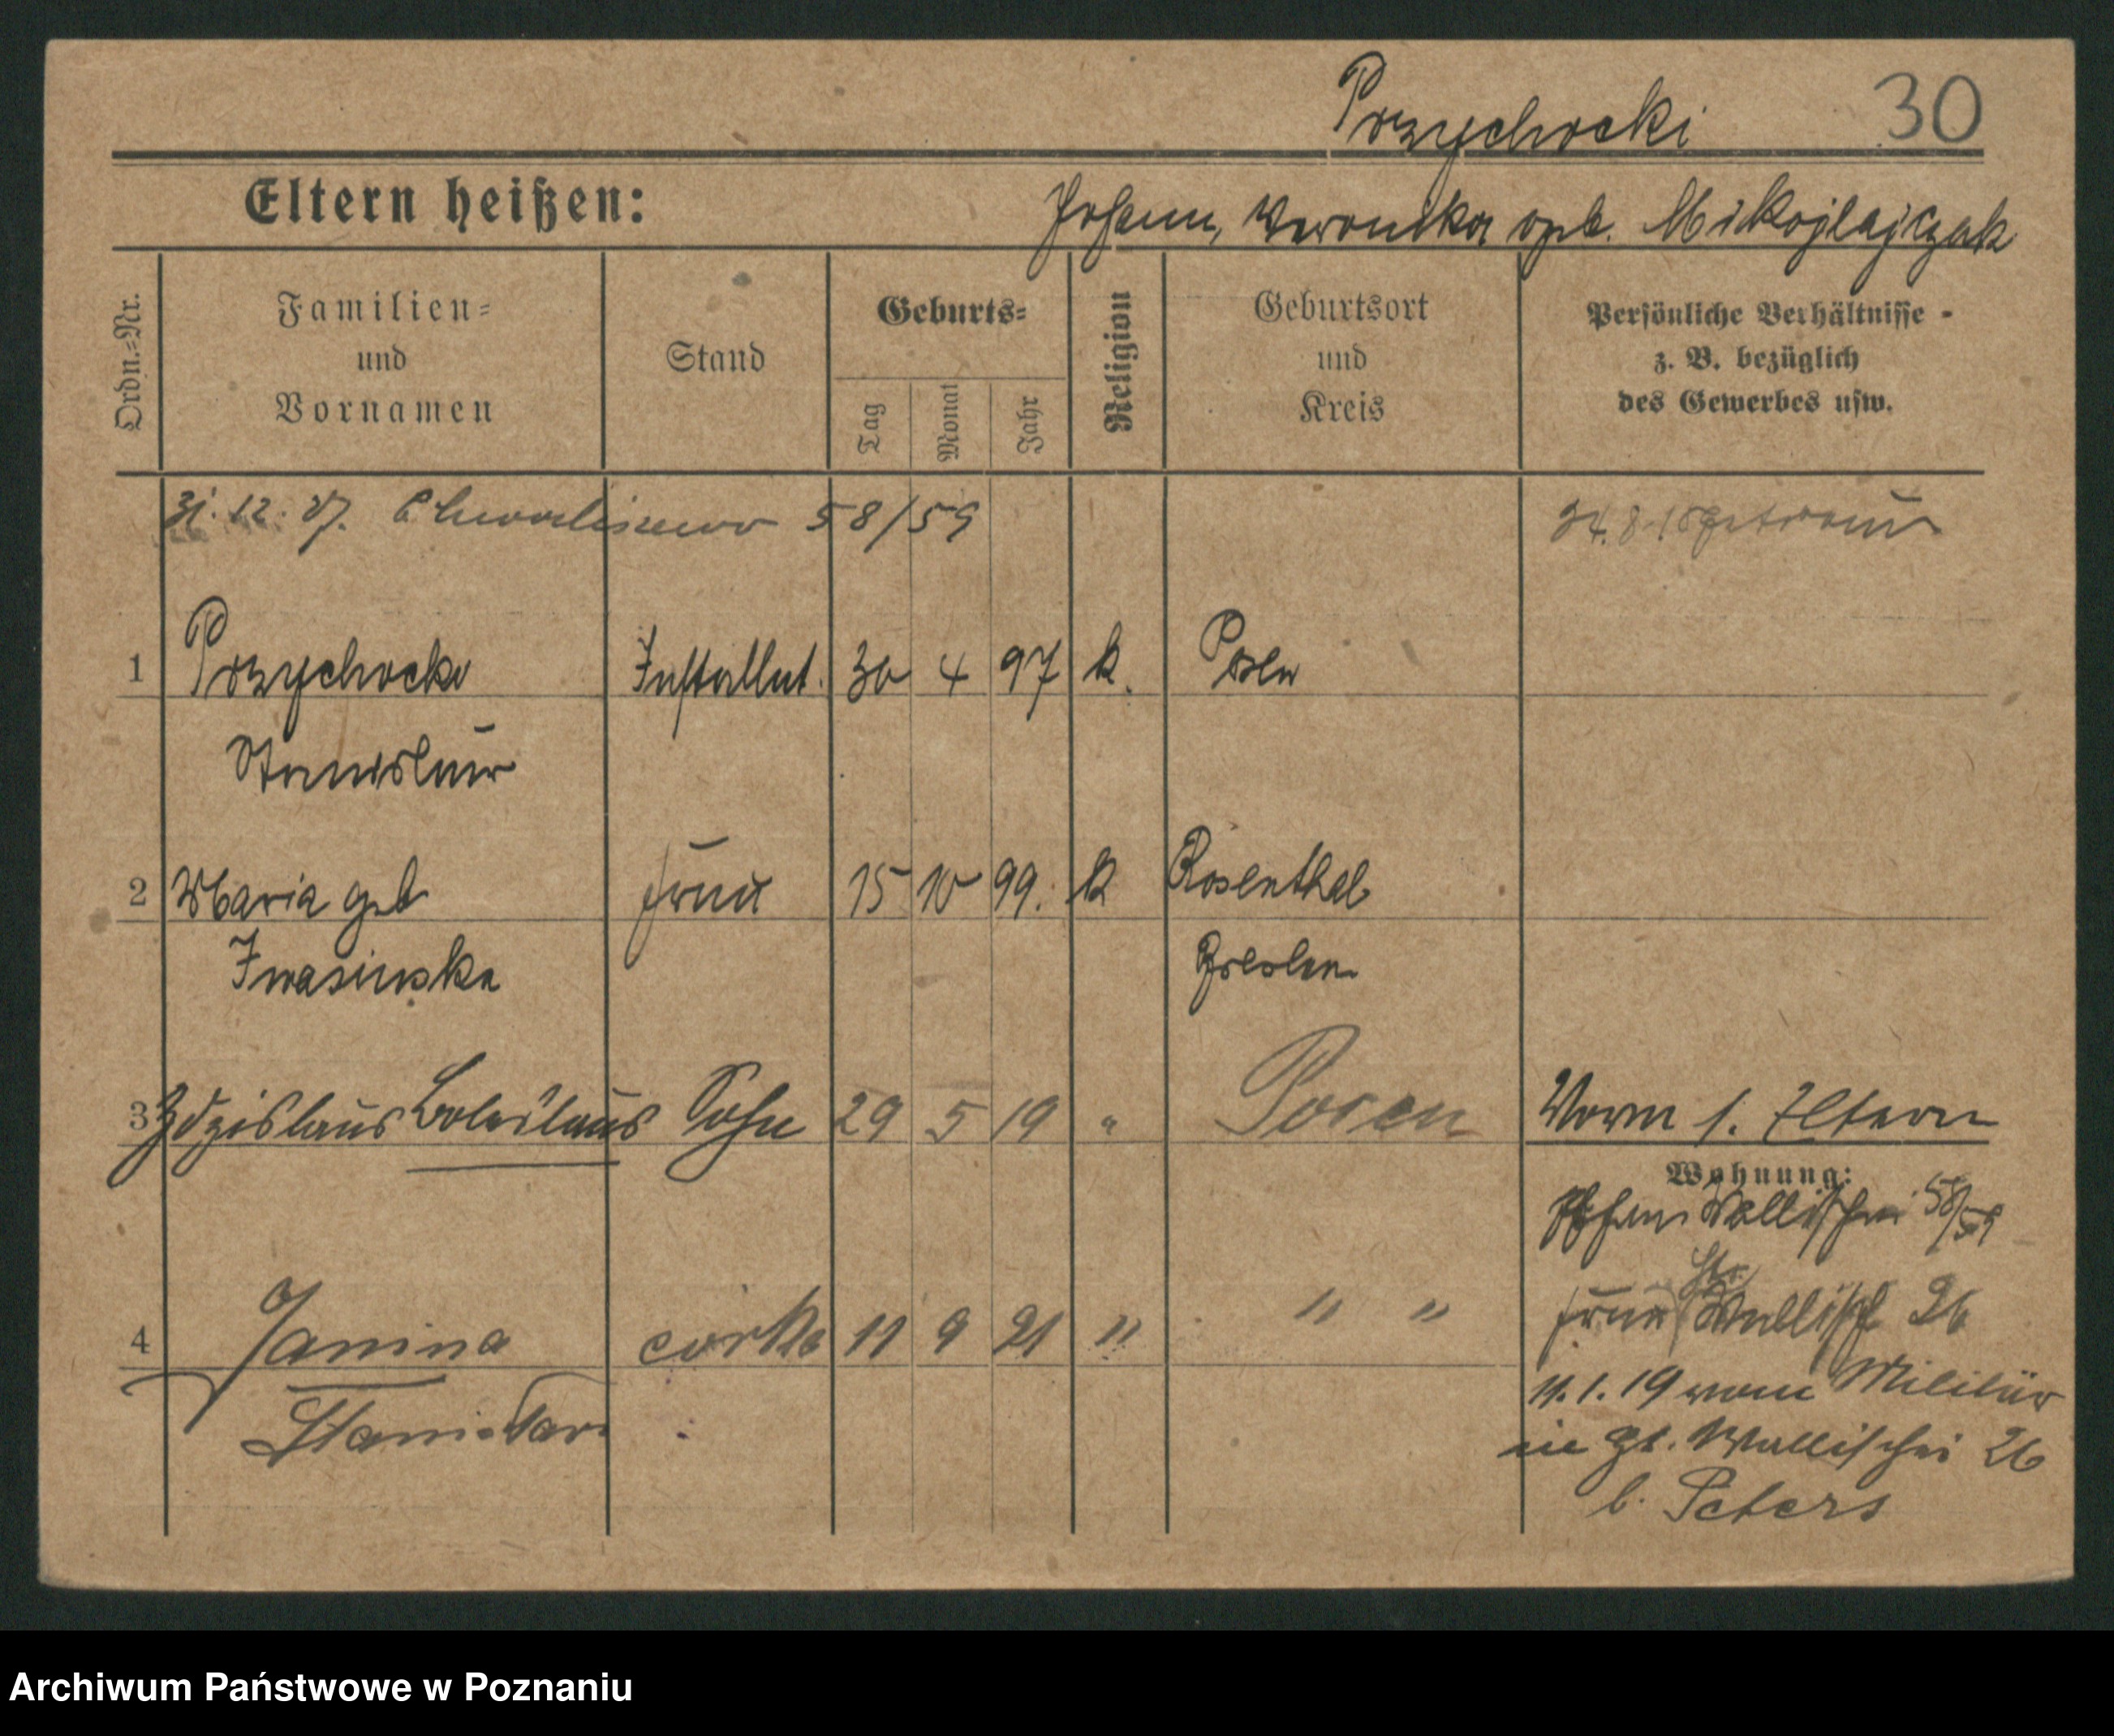 Przychocki 30
Eltern heißen: Johann, Veronika geb. Mikojlajczak
Ordn.=Nr. Familien= und Vornamen Stand Geburts= Tag Monat Jahr Religion Geburtsort und Kreis Persönliche Verhältnisse - z. B. bezüglich des Gewerbes usw.
31. 12. 27. Chwaliszewo 58/59 24.8.18 getraut
1 Przychocki Installat. 30 4 97 k. Posen
Stanislaus
2 Maria geb Frau 15 10 99. k Rosenthal
Iwasinska Breslau
3 Zdzislaus Boleslaus Sohn 29 5 19 " Posen Worm 1. Eltern
Wohnung:
Wallischei 58/59
4 Janina córka 11 9 21 " " " Frau Wallisch 26
Stanisława 11.1.19 vom Militär
in Wallischei 26
b. Peters
Archiwum Państwowe w Poznaniu